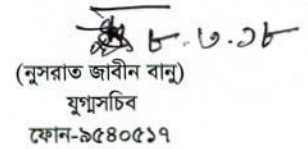 ৮.৩.১৮
(নুসরাত জাবীন বানু)
যুগ্মসচিব
ফোন-৯৫৪০৫১৭